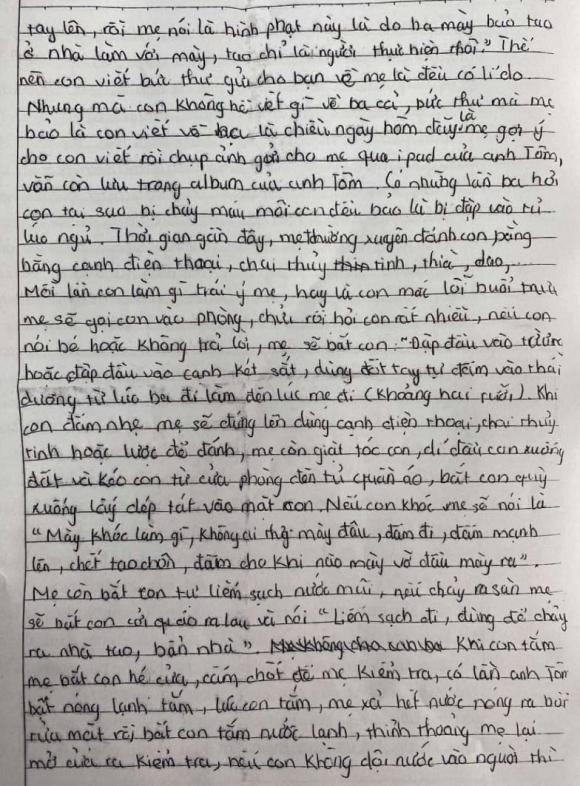 tay lên, rồi mẹ nói là hình phạt này là do ba mày bảo tao
ở nhà làm với mày, tao chỉ là người thực hiện thôi." Thế
nên con viết bức thư gửi cho bạn về mẹ là đều có lí do
Nhưng mà con không hề viết gì về ba cả, bức thư mà mẹ
bảo là con viết về là chiều ngày hôm đấy là mẹ gợi ý
cho con viết rồi chụp ảnh gửi cho mẹ qua ipad của anh Tôm,
vẫn còn lưu trong album của anh Tôm. Có những lần ba hỏi
con tại sao bị chảy máu môi con đều bảo là bị đập vào tủ
lúc ngủ. Thời gian gần đây, mẹ thường xuyên đánh con bằng
bằng cạnh điện thoại, chai thủy tinh, thìa, dao,...
Mỗi lần con làm gì trái ý mẹ, hay là con mắc lỗi buổi trưa
mẹ sẽ gọi con vào phòng, chửi rồi hỏi con rất nhiều, nếu con
nói bé hoặc không trả lời, mẹ sẽ bắt con: "Đập đầu vào tường
hoặc đập đầu vào cạnh két sắt, dùng đốt tay tự đấm vào thái
dương từ lúc ba đi làm đến lúc mẹ đi (khoảng hai rưỡi). Khi
con đấm nhẹ mẹ sẽ đứng lên dùng cạnh điện thoại, chai thủy
tinh hoặc lược để đánh, mẹ còn giật tóc con, dí đầu con xuống
đất và kéo con từ cửa phòng đến tủ quần áo, bắt con quỳ
xuống lấy dép tát vào mặt con. Nếu con khóc mẹ sẽ nói là
"Mày khóc làm gì, không ai thở mày đâu, đấm đi, đấm mạnh
lên, chết tao chôn, đấm cho khi nào mày vỡ đầu mày ra".
Mẹ còn bắt con tự liếm sạch nước mũi, nếu chảy ra sàn mẹ
sẽ bắt con cởi quần áo ra lau và nói "Liếm sạch đi, đừng để chảy
ra nhà tao, bẩn nhà". Khi con tắm
mẹ bắt con hé cửa, cấm chốt để mẹ kiểm tra, có lần anh Tôm
bật nóng lạnh tắm, lúc con tắm, mẹ xả hết nước nóng ra bồn
rửa mặt rồi bắt con tắm nước lạnh, thỉnh thoảng mẹ lại
mở cửa ra kiểm tra, nếu con không dội nước vào người thì